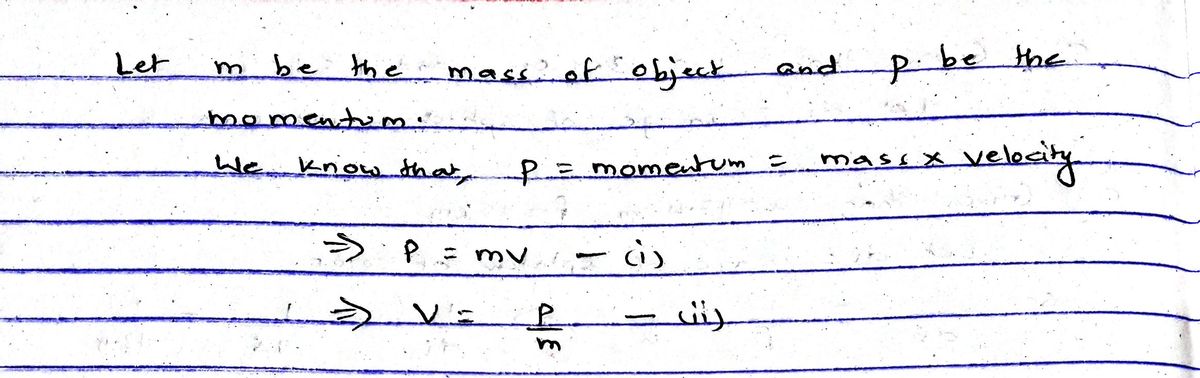 Let m be the mass of object and p be the
momentum.
We know that, p = momentum = mass x velocity
⇒ P = mv — (i)
⇒ V = P/m — (ii)